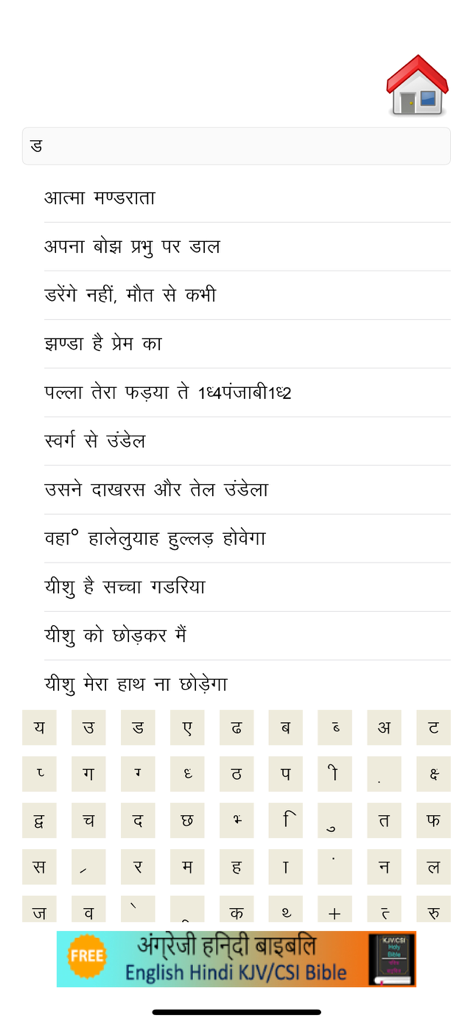 ड
आत्मा मण्डराता
अपना बोझ प्रभु पर डाल
डरेंगे नहीं, मौत से कभी
झण्डा है प्रेम का
पल्ला तेरा फड़या ते 1ध्4पंजाबी1ध्2
स्वर्ग से उंडेल
उसने दाखरस और तेल उंडेला
वहा° हालेलुयाह हुल्लड़ होवेगा
यीशु है सच्चा गडरिया
यीशु को छोड़कर मैं
यीशु मेरा हाथ ना छोड़ेगा
य उ ड ए ढ ब ब्‍ अ ट
प्‍ ग ग्‍ ध्‍ ठ प ी . क्ष्‍
द्व च द छ भ्‍ ि ु त फ
स ्र र म ह ा ं न ल
ज व े ृ क थ्‍ + त्‍ रु
FREE
अंग्रेजी हिन्दी बाइबलि
English Hindi KJV/CSI Bible
KJV/CSI
Holy
Bible